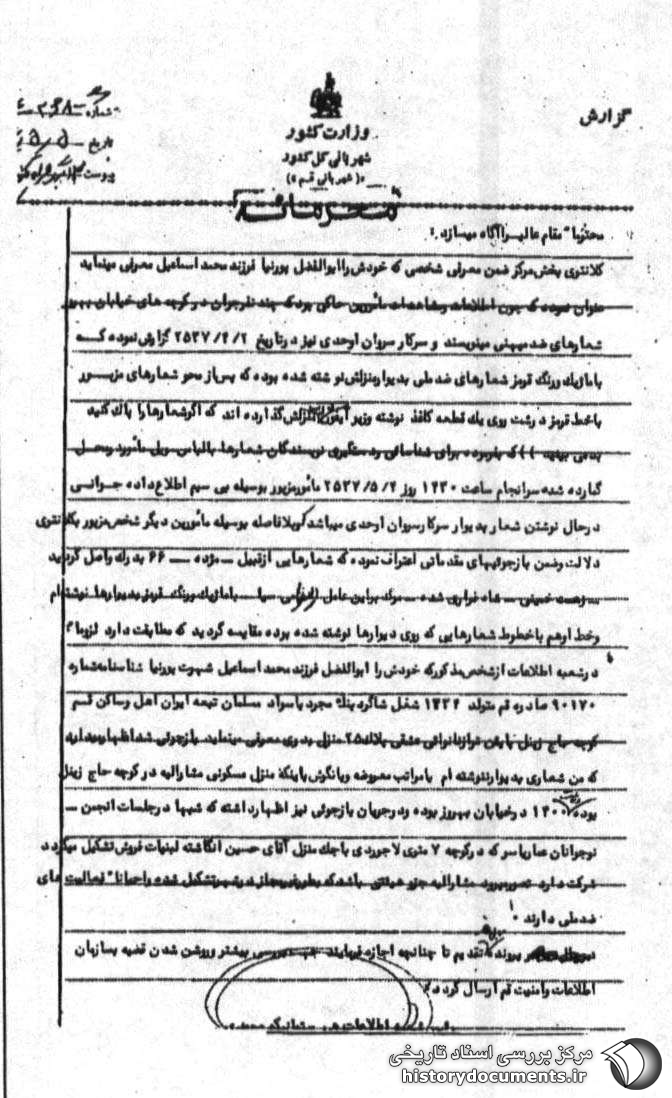 گزارش
وزارت کشور
شهربانی کل کشور
(شهربانی قم)
شماره
تاریخ
پیوست
محرمانه
محترما" مقام عالی را آگاه میسازد :
کلانتری بخش مرکز ضمن معرفی شخصی که خودش را ابوالفضل پورنیا فرزند محمد اسماعیل معرفی مینماید
عنوان نموده که چون اطلاعات و مشاهدات مأمورین حاکی بود که چند نفر جوان در کوچه های خیابان بهروز
شعارهای ضد میهنی مینویسند و سرکار سروان اوحدی نیز در تاریخ ۲۵۳۷/۴/۲ گزارش نموده که
با ماژیک و رنگ قرمز شعارهای ضد ملی بدیوار منزلش نوشته شده بوده که پس از محو شعارهای مزبور
با خط قرمز درشت روی یک قطعه کاغذ نوشته وزیر منزلش گذارده اند که اگر شعارها را پاک کنید
که نامبرده برای شناسائی و دستگیری نویسندگان شعارها با لباس سویل مأمور و محل
گمارده شده سرانجام ساعت ۱۲۳۰ روز ۲۵۳۷/۵/۴ مأمور مزبور بوسیله بی سیم اطلاع داده جوانی
در حال نوشتن شعار بدیوار سرکار سروان اوحدی میباشد و بلافاصله بوسیله مأمورین دیگر شخص مزبور بکلانتری
دلالت و ضمن بازجوئیهای مقدماتی اعتراف نموده که شعارهایی از قبیل ــ مژده ــ ۶۶ بدرک واصل گردید
ــ خمینی ــ شاه فراری شده ــ مرگ بر این عامل سیا ــ با ماژیک و رنگ قرمز بدیوارها نوشته ام
و خط او هم با خطوط شعارهایی که روی دیوارها نوشته شده بوده مقایسه گردید که مطابقت دارد لزوما"
در شعبه اطلاعات از شخص مذکور که خودش را ابوالفضل فرزند محمد اسماعیل شهرت پورنیا شناسنامه شماره
۹۰۱۷۰ صادره قم متولد ۱۳۳۴ شغل شاگرد بنک مجرد با سواد مسلمان تبعه ایران اهل و ساکن قم
کوچه حاج زینل پلاک ۲۵ منزل پدری معرفی مینماید بازجوئی شد اظهار میدارد
که من شعاری بدیوار ننوشته ام با مراتب معروضه و با نگرش باینکه منزل مسکونی مشارالیه در کوچه حاج زینل
بوده ۱۴۰۰ در خیابان بهروز بوده و در جریان بازجوئی نیز اظهار داشته که شبها در جلسات انجمن ــ
نوجوانان عمار یاسر که در کوچه ۷ متری لاجوردی منزل آقای حسین انگاشته لبنیات فروش تشکیل میگردد
شرکت دارد تصور میرود مشارالیه جزو هیئتی باشد که بطور غیر مجاز در شهر تشکیل شده و احیانا" فعالیت های
ضد ملی دارند
پرونده تقدیم تا چنانچه اجازه فرمایند جهت بررسی بیشتر و روشن شدن قضیه بسازمان
اطلاعات و امنیت قم ارسال گردد
مرکز بررسی اسناد تاریخی
historydocuments.ir